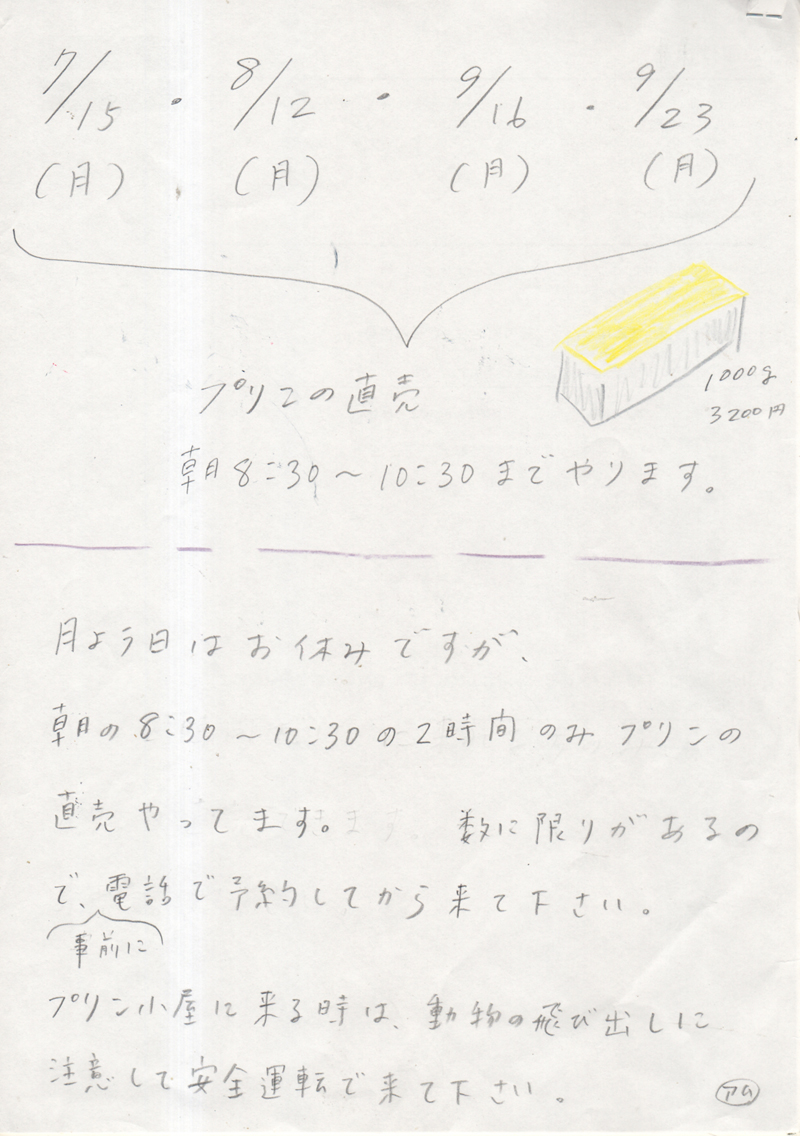 7/15 ・ 8/12 ・ 9/16 ・ 9/23
(月) (月) (月) (月)
1000g
3200円
プリンの直売
朝8:30～10:30までやります。
月よう日はお休みですが、
朝の8:30～10:30の2時間のみプリンの
直売やってます。 数に限りがあるの
で、電話で予約してから来て下さい。
事前に
プリン小屋に来る時は、動物の飛び出しに
注意して安全運転で来て下さい。
アム